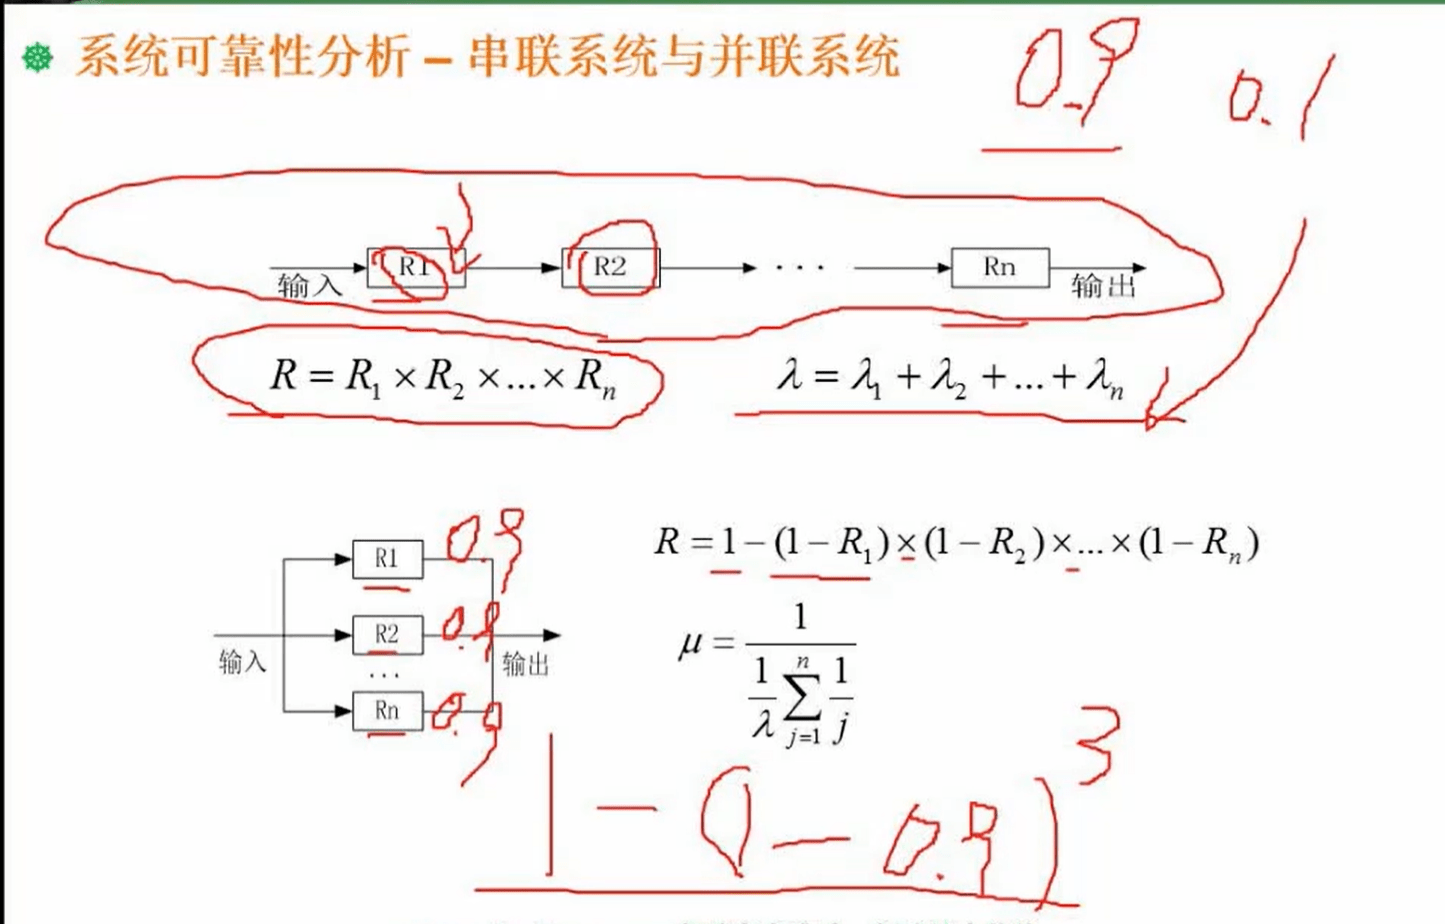 系统可靠性分析 – 串联系统与并联系统
0.9 0.1
输入 R1 R2 ··· Rn 输出
R = R₁ × R₂ ×...× Rₙ
λ = λ₁ + λ₂ +...+ λₙ
R1 0.9
R2 0.9
输入 ··· 输出
Rn 0.9
R = 1 − (1 − R₁) × (1 − R₂) ×...× (1 − Rₙ)
μ = 1 / (1/λ ∑ⱼ₌₁ⁿ 1/j)
1 − (1 − 0.9)³